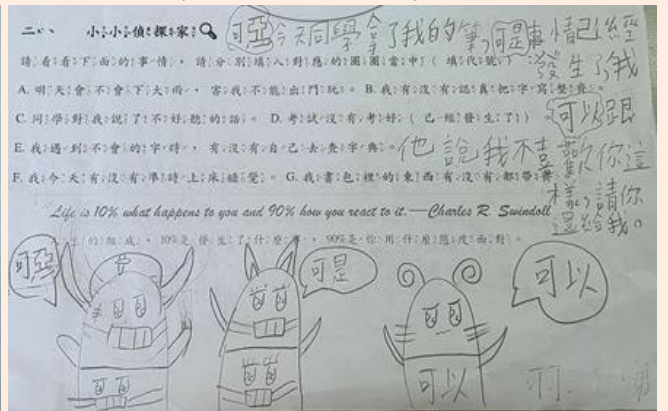 二、小小偵探家
可惡今天同學拿了我的筆，可是事情已經發生了，我可以跟他說我不喜歡你這樣，請你還給我。
請看看下面的事情，請分別填入對應的圈圈當中（填代號）
A. 明天會不會下大雨，害我不能出門玩。B. 我有沒有認真把字寫整齊。
C. 同學對我說了不好聽的話。D. 考試沒有考好（已經發生了）
E. 我遇到不會的字時，有沒有自己去查字典。
F. 我今天有沒有準時上床睡覺。G. 我書包裡的東西有沒有都帶齊
"Life is 10% what happens to you and 90% how you react to it. —Charles R. Swindoll
生的組成，10%是發生了什麼事，90%是你用什麼態度面對。
可惡
可是
可以
可以